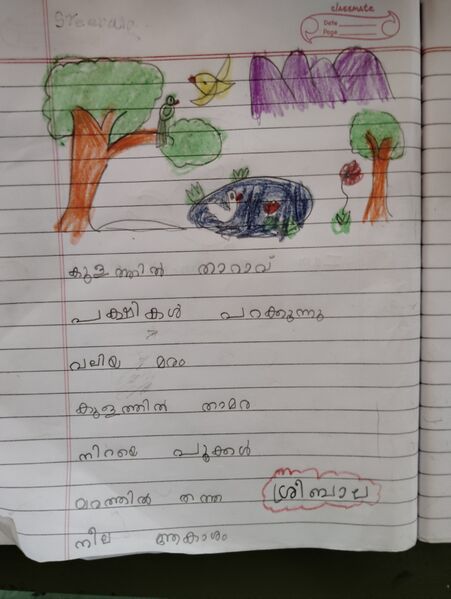 classmate
Date
Page
കുളത്തിൽ താറാവ്
പക്ഷികൾ പറക്കുന്നു
വലിയ മരം
കുളത്തിൽ താമര
നിറയെ പൂക്കൾ
മരത്തിൽ തത്ത
ശ്രീബാല
നീല ആകാശം